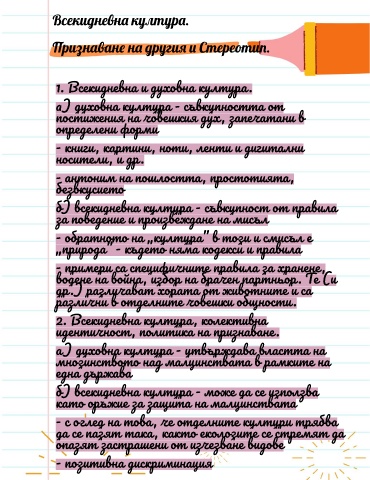 Всекидневна култура.
Признаване на другия и Стереотип.
1. Всекидневна и духовна култура.
а) духовна култура - съвкупността от
постижения на човешкия дух, запечатани в
определени форми
- книги, картини, ноти, ленти и дигитални
носители, и др.
- антоним на пошлостта, простотията,
безвкусието
б) всекидневна култура - съвкупност от правила
за поведение и произвеждане на мисъл
- обратното на „култура" в този и смисъл е
„природа - където няма кодекси и правила
- примери са специфичните правила за хранене,
водене на война, избор на брачен партньор. Те (и
др.) различават хората от животните и са
различни в отделните човешки общности.
2. Всекидневна култура, колективна
идентичност, политика на признаване.
а) духовна култура - утвърждава властта на
мнозинството над малцинствата в рамките на
една държава
б) всекидневна култура - може да се използва
като оръжие за защита на малцинствата
- с оглед на това, че отделните култури трябва
да се пазят така, както еколозите се стремят да
опазят застрашени от изчезване видове
- позитивна дискриминация